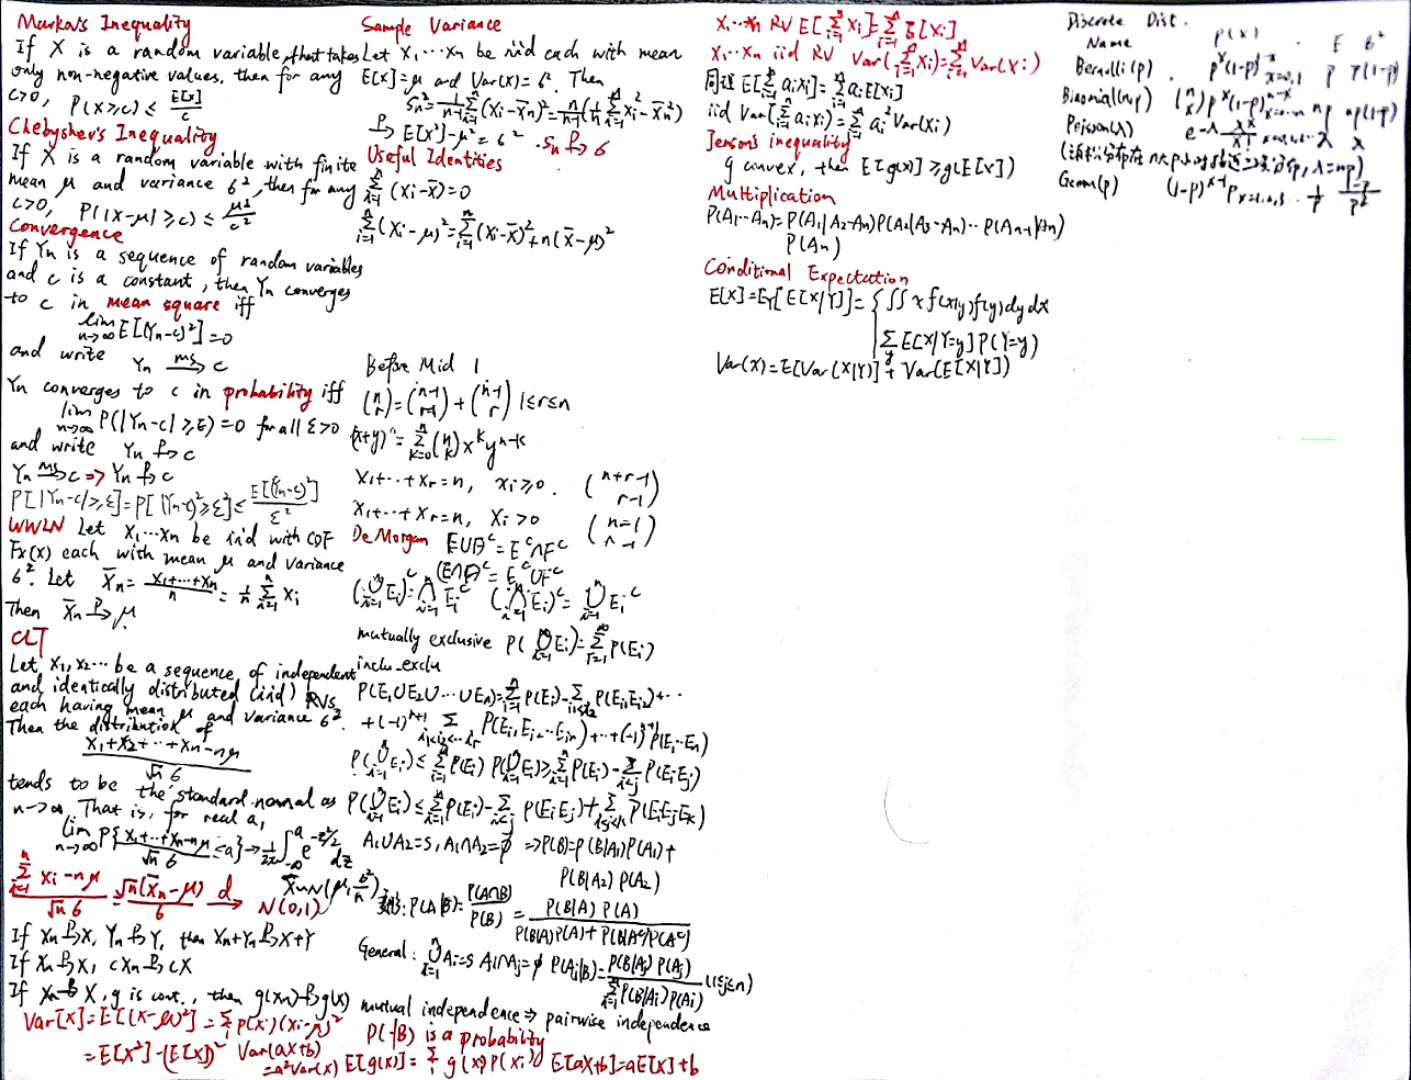 Markov's Inequality
If X is a random variable, that takes
only non-negative values, then for any
c>0, P(X≥c) ≤ E[X]/c
Chebyshev's Inequality
If X is a random variable with finite
mean μ and variance 6², then for any
c>0, P(|X-μ| ≥ c) ≤
Convergence
If Yn is a sequence of random variables
and c is a constant, then Yn converges
to c in mean square iff
lim n→∞ E[(Yn-c)²]=0
and write Yn ms→ c
Yn converges to c in probability iff
lim n→∞ P(|Yn-c| ≥ ε)=0 for all ε>0
and write Yn P→ c
Yn ms→ c => Yn P→ c
P[|Yn-c| ≥ ε]=P[|Yn-c|² ≥ ε²] ≤ E[(Yn-c)²]/ε²
WWLN Let X1,...Xn be iid with CDF
Fx(x) each with mean μ and variance
6². Let X̄n = (X1+...+Xn)/n = 1/n Σ i=1 n Xi
Then X̄n P→ μ.
CLT
Let X1, X2... be a sequence of independent
and identically distributed (iid) RVs
each having mean μ and variance 6².
Then the distribution of
(X1+X2+...+Xn-nμ)/(√n 6)
tends to be the standard normal as
n→∞. That is, for real a,
lim n→∞ P{(X1+...+Xn-nμ)/(√n 6) ≤ a} → ∫ -∞ a e^(-z²/2) dz
(Σ i=1 n Xi - nμ)/(√n 6) = √n(X̄n-μ)/6 d→ N(0,1)
X̄n~N(μ, 6²/n)
If Xn P→ X, Yn P→ Y, then Xn+Yn P→ X+Y
If Xn P→ X, cXn P→ cX
If Xn P→ X, g is cont., then g(Xn) P→ g(X)
Var[X]=E[(X-μ)²] = Σ i p(xi)(xi-μ)²
=E[X²]-(E[X])² Var(aX+b)
=a²Var(X)
Sample Variance
Let X1...Xn be iid each with mean
E[X]=μ and Var(X)=6². Then
Sn² = 1/(n-1) Σ i=1 n (Xi-X̄n)² = n/(n-1) (1/n Σ i=1 n Xi² - X̄n²)
P→ E[X²]-μ² = 6². Sn P→ 6
Useful Identities
Σ i=1 n (Xi-X̄)=0
Σ i=1 n (Xi-μ)² = Σ i=1 n (Xi-X̄)² + n(X̄-μ)²
Before Mid 1
(n r) = (n-1 r-1) + (n-1 r) 1≤r≤n
(x+y)^n = Σ k=0 n (n k) x^k y^(n-k)
X1+...+Xr=n, Xi≥0. (n+r-1 r-1)
X1+...+Xr=n, Xi>0 (n-1 r-1)
De Morgan (E∪F)^c = E^c∩F^c
(E∩F)^c = E^c∪F^c
(∪ i=1 n Ei)^c = ∩ i=1 n Ei^c (∩ i=1 n Ei)^c = ∪ i=1 n Ei^c
mutually exclusive P(∪ i=1 ∞ Ei) = Σ i=1 ∞ P(Ei)
inclu_exclu
P(E1∪E2∪...∪En) = Σ i=1 n P(Ei) - Σ i1<i2 P(Ei1Ei2)+...
+(-1)^(r+1) Σ i1<i2<...ir P(Ei1Ei2...Eir)+...+(-1)^(n+1) P(E1...En)
P(∪ i=1 n Ei) ≤ Σ i=1 n P(Ei) P(∪ i=1 n Ei) ≥ Σ i=1 n P(Ei) - Σ i<j P(EiEj)
P(∪ i=1 n Ei) ≤ Σ i=1 n P(Ei) - Σ i<j P(EiEj) + Σ i<j<k P(EiEjEk)
A1∪A2=S, A1∩A2=φ => P(B)=P(B|A1)P(A1)+
P(B|A2)P(A2)
P(A|B) = P(A∩B)/P(B) = P(B|A)P(A)/(P(B|A)P(A)+P(B|A^c)P(A^c))
General: ∪ i=1 n Ai=S Ai∩Aj=φ P(Aj|B) = P(B|Aj)P(Aj)/(Σ i=1 n P(B|Ai)P(Ai)) (1≤j≤n)
mutual independence => pairwise independence
P(·|B) is a probability
E[g(X)] = Σ i g(xi)P(xi) E[aX+b]=aE[X]+b
X1...Xn RV E[Σ i=1 n Xi] = Σ i=1 n E[Xi]
X1...Xn iid RV Var(Σ i=1 n Xi) = Σ i=1 n Var(Xi)
同理 E[Σ i=1 n aiXi] = Σ i=1 n aiE[Xi]
iid Var(Σ i=1 n aiXi) = Σ i=1 n ai²Var(Xi)
Jensen's inequality
g convex, then E[g(X)] ≥ g(E[X])
Multiplication
P(A1...An)=P(A1|A2...An)P(A2|A3...An)...P(An-1|An)
P(An)
Conditional Expectation
E[X]=EY[E[X|Y]] = { ∫∫ x f(x|y)f(y)dydx
Σ y E[X|Y=y]P(Y=y)
Var(X)=E[Var(X|Y)] + Var(E[X|Y])
Discrete Dist.
Name P(X) E 6²
Bernulli(p) p^x(1-p)^(1-x) x=0,1 p p(1-p)
Binomial(n,p) (n x) p^x(1-p)^(n-x) x=0...n np np(1-p)
Poisson(λ) e^-λ λ^x/x! x=0,1,... λ λ
Geom(p) (1-p)^(x-1) p x=1,2,3... 1/p (1-p)/p²